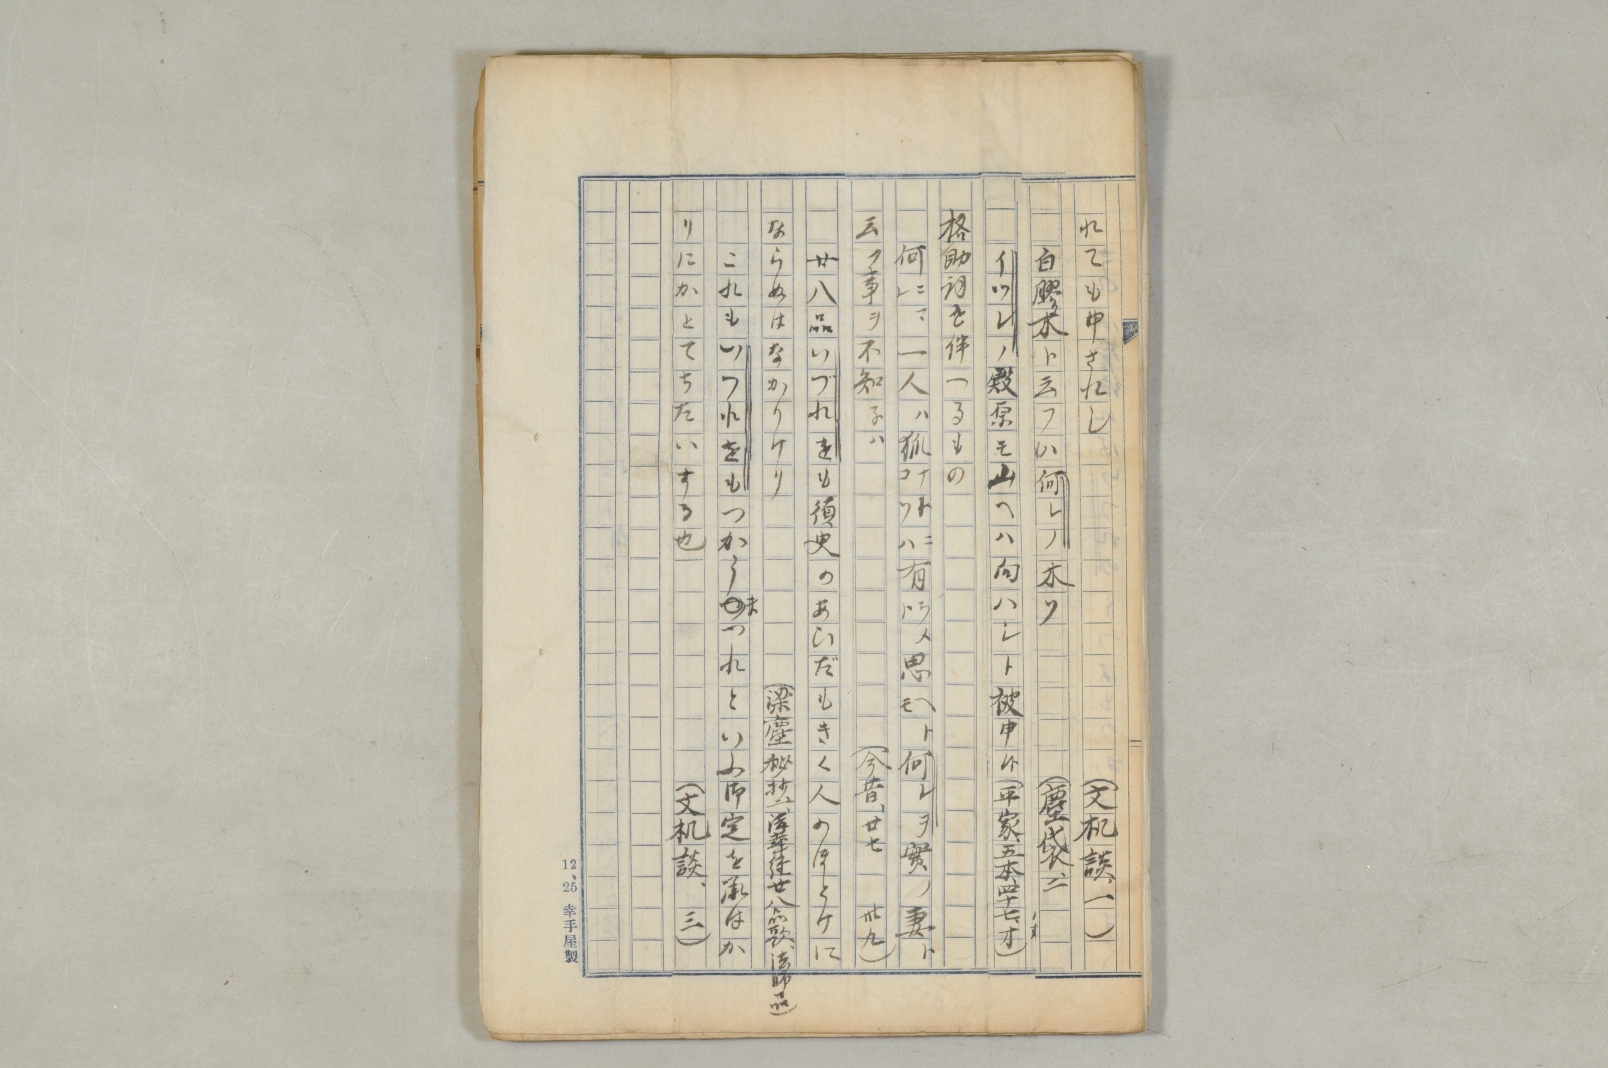 れても申されし
(文机談、一)
白膠木ト云フハ何レノ木ソ
(塵袋、二)
イツレノ殿原モ山ヘハ向ハレト被申ケ(平家、五本、四十七オ)
格助詞を伴へるもの
何レニマレ一人ハ狐ニコソハ有ラメ思ヘトモ何レヲ實ノ妻ト
云フ事ヲ不知子ハ
(今昔、廿七 卅九)
廿八品いづれをも須臾のあひだもきく人のほとけに
ならぬはなかりけり
(梁塵秘抄二、法華経廿八品歌、法師品)
これもいつれをもつかうまつれといふ御定を承はか
りにかとてちたいする也
(文机談、三)
12、25 幸手屋製